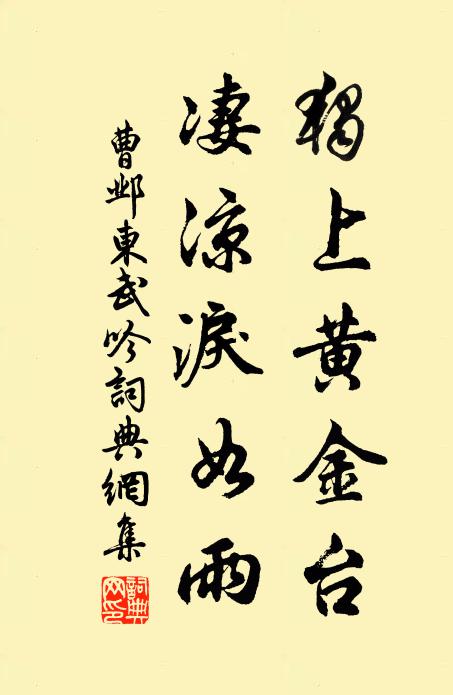 獨上黃金台
凄涼淚如雨
曹邺東武吟詞典網集
詞典
网印